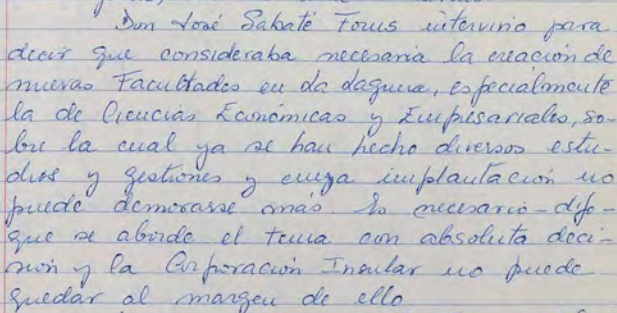 Don José Sabaté Forns intervino para
decir que consideraba necesaria la creación de
nuevas Facultades en La Laguna, especialmente
la de Ciencias Económicas y Empresariales, so-
bre la cual ya se han hecho diversos estu-
dios y gestiones y cuya implantación no
puede demorarse más. Es necesario - dijo -
que se aborde el tema con absoluta deci-
sión y la Corporación Insular no puede
quedar al margen de ello